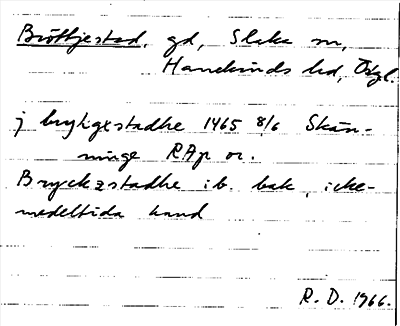 Bröttjestad, gd, Slaka sn,
Hanekinds hd, Östgl.
j brytgixstadhe 1465 8/6 Skän-
ninge RAp or.
Bryckzstadhe ib. bak, icke-
medeltida hand
R. D. 1966.